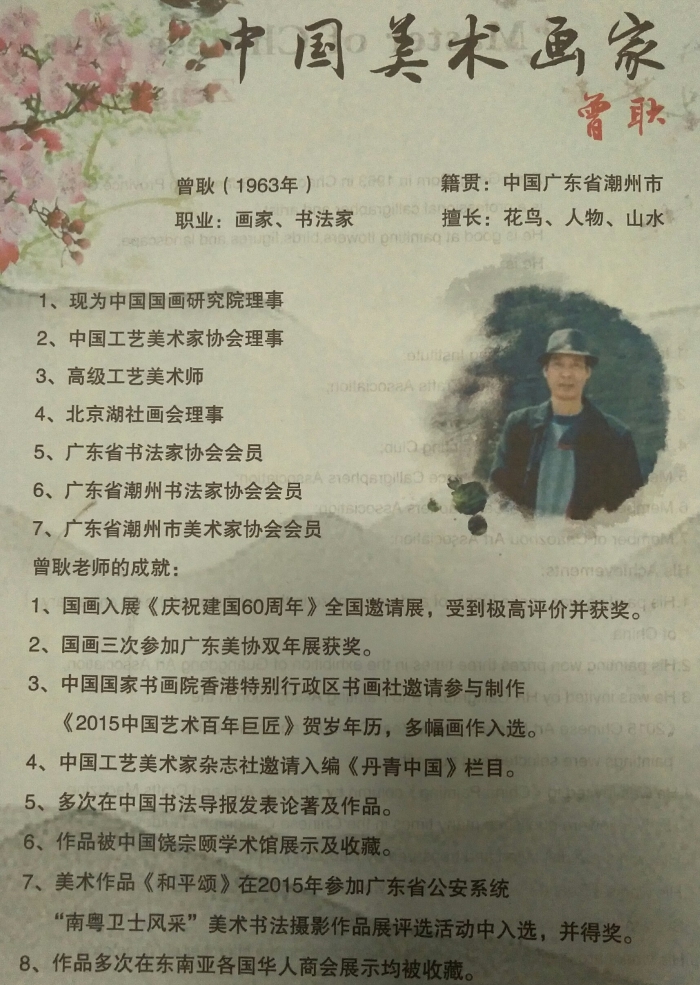 中国美术画家
曾耿
曾耿（1963年） 籍贯：中国广东省潮州市
职业：画家、书法家 擅长：花鸟、人物、山水
1、现为中国国画研究院理事
2、中国工艺美术家协会理事
3、高级工艺美术师
4、北京湖社画会理事
5、广东省书法家协会会员
6、广东省潮州书法家协会会员
7、广东省潮州市美术家协会会员
曾耿老师的成就：
1、国画入展《庆祝建国60周年》全国邀请展，受到极高评价并获奖。
2、国画三次参加广东美协双年展获奖。
3、中国国家书画院香港特别行政区书画社邀请参与制作
《2015中国艺术百年巨匠》贺岁年历，多幅画作入选。
4、中国工艺美术家杂志社邀请入编《丹青中国》栏目。
5、多次在中国书法导报发表论著及作品。
6、作品被中国饶宗颐学术馆展示及收藏。
7、美术作品《和平颂》在2015年参加广东省公安系统
“南粤卫士风采”美术书法摄影作品展评选活动中入选，并得奖。
8、作品多次在东南亚各国华人商会展示均被收藏。